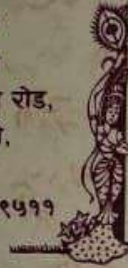 रोड,
,
९५११